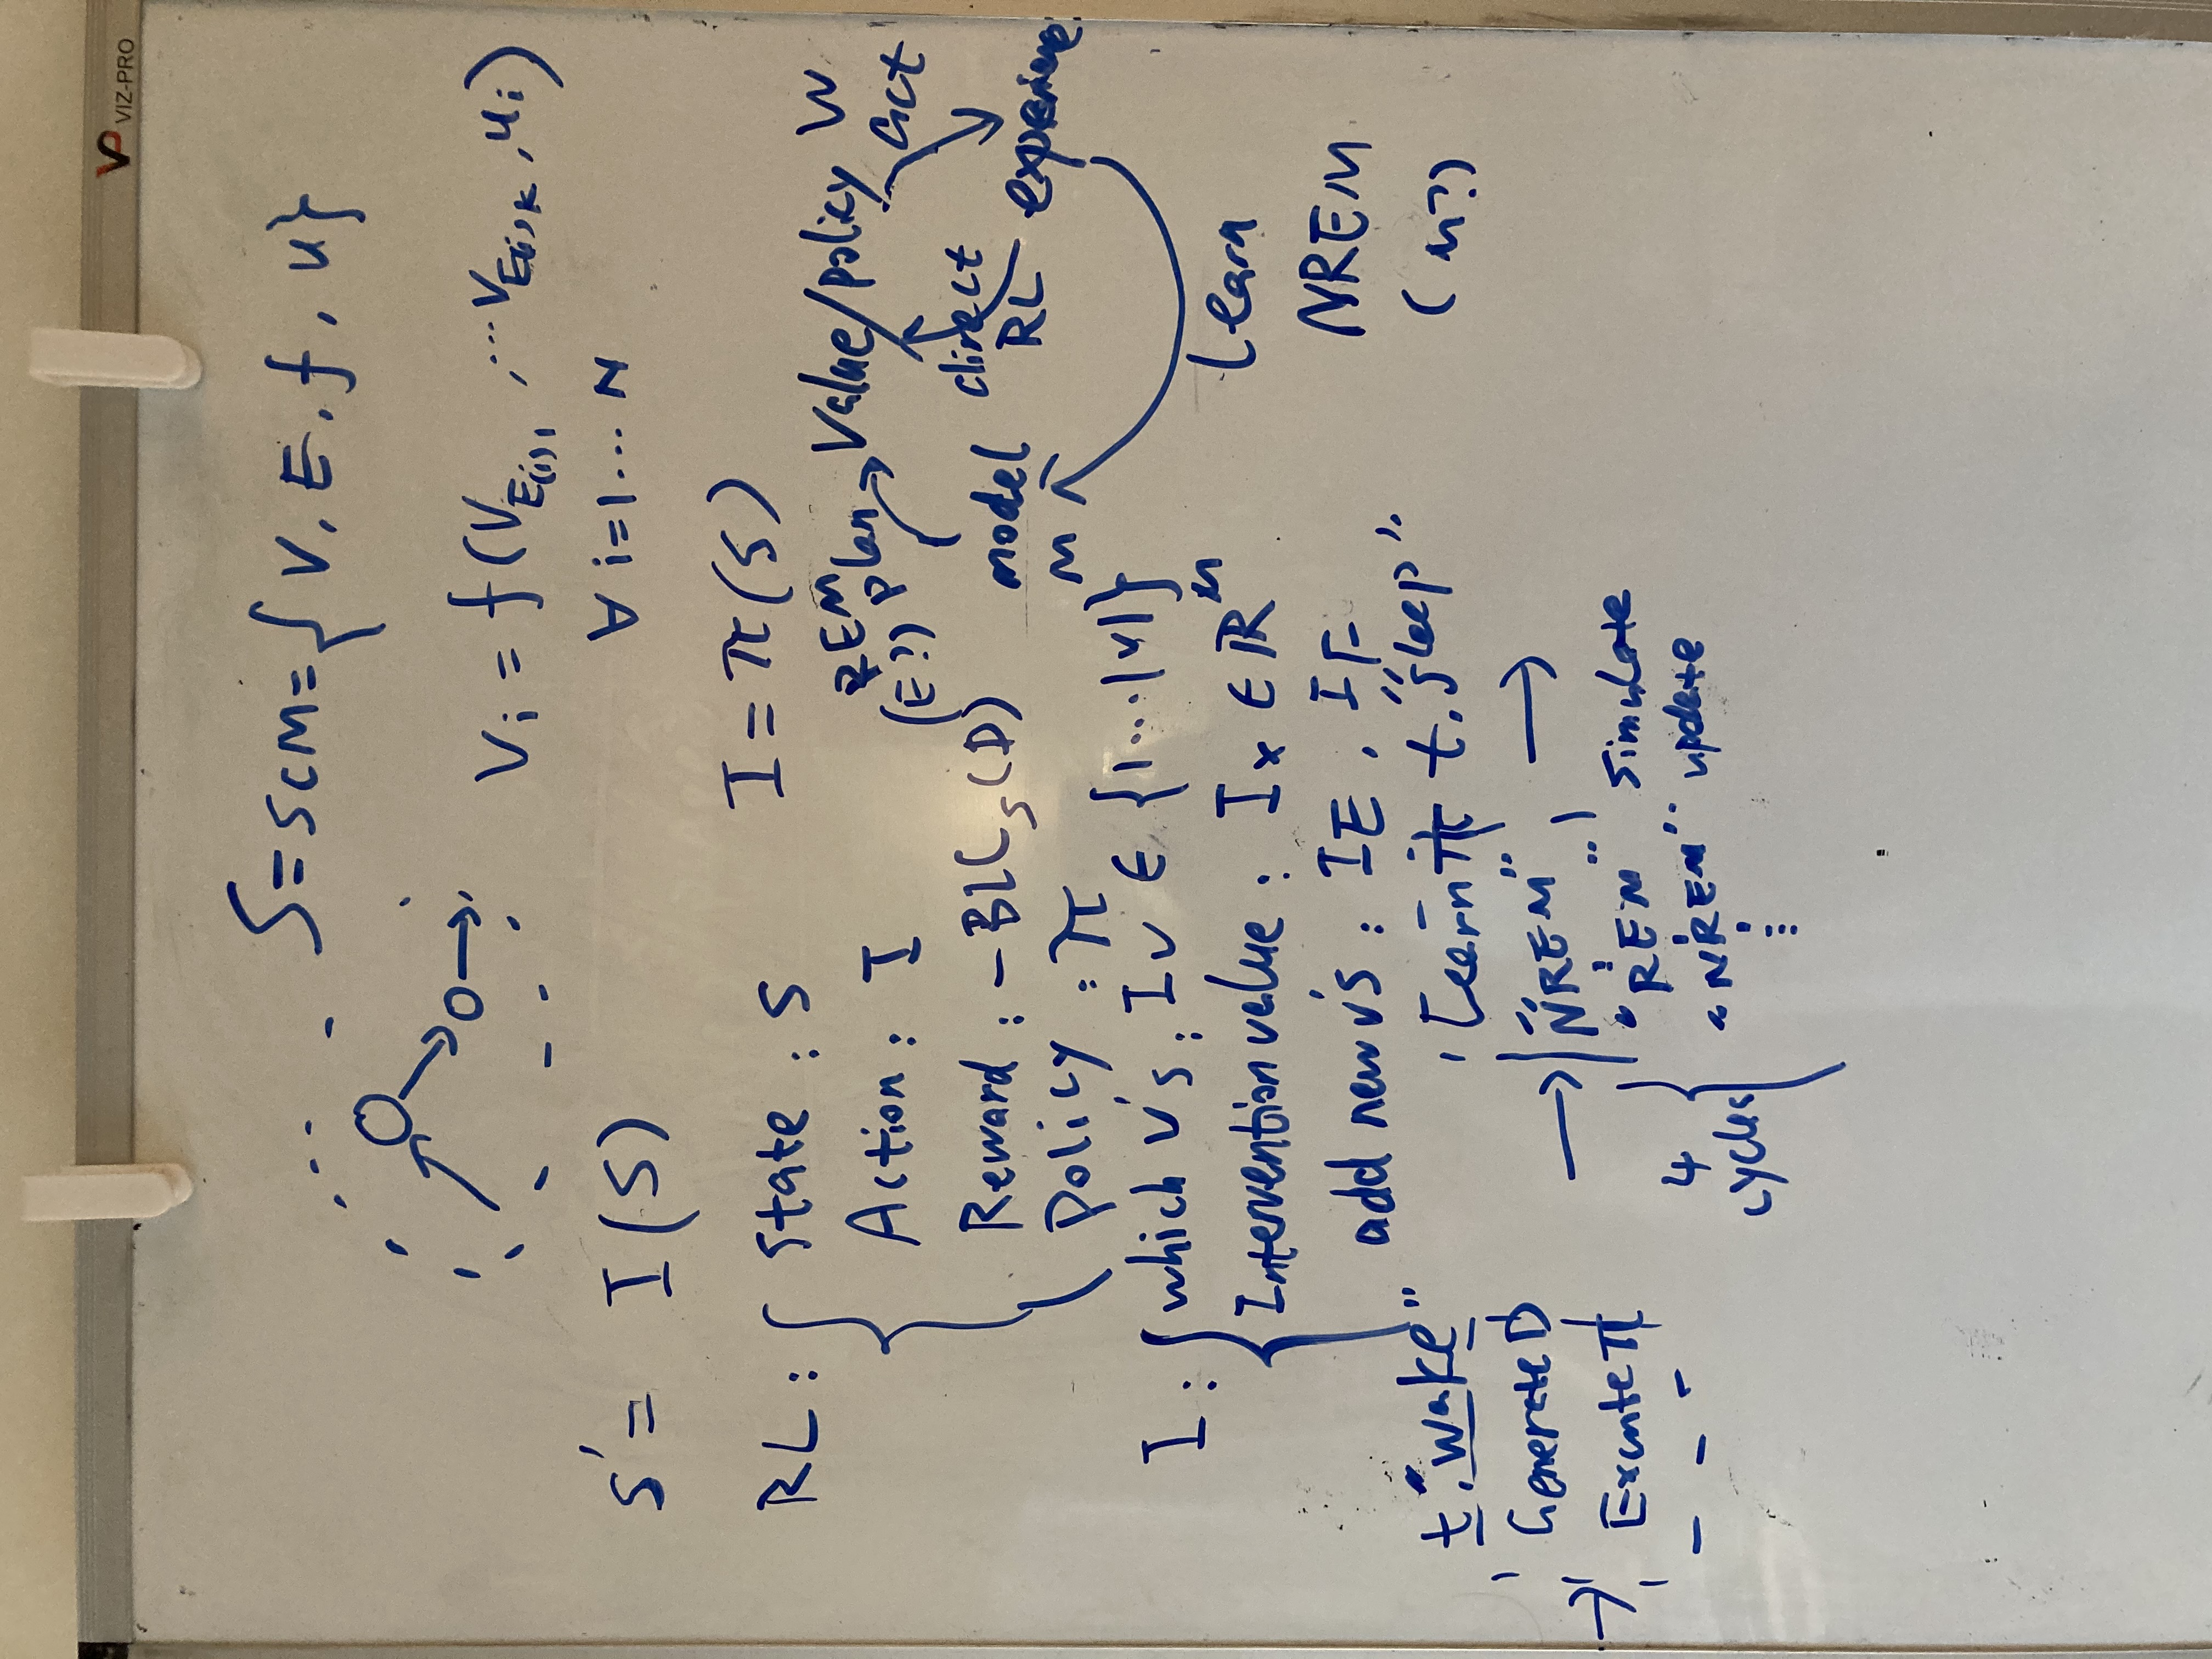 VP VIZ-PRO
S = SCM = { V, E, f, u }
V_i = f(V_E(i)1, ... V_E(i)k, u_i)
∀ i=1... N
S' = I(S)
I = π(S)
RL: { State : S
Action : I
Reward : -BIC_S(D)
Policy : π
REM
(E?) plan
Value/policy W
act
direct
RL
model
M
experience
Learn
NREM
(M?)
I: { which V's : I_V ∈ {1...|V|}^M
Intervention value : I_x ∈ ℝ^M
add new V's : I_E , I_F
t. "wake"
Generate D
→ Execute π
Learn π t. "sleep"
→ "NREM" →
"REM" simulate
"NREM" update
⋮
4
cycles